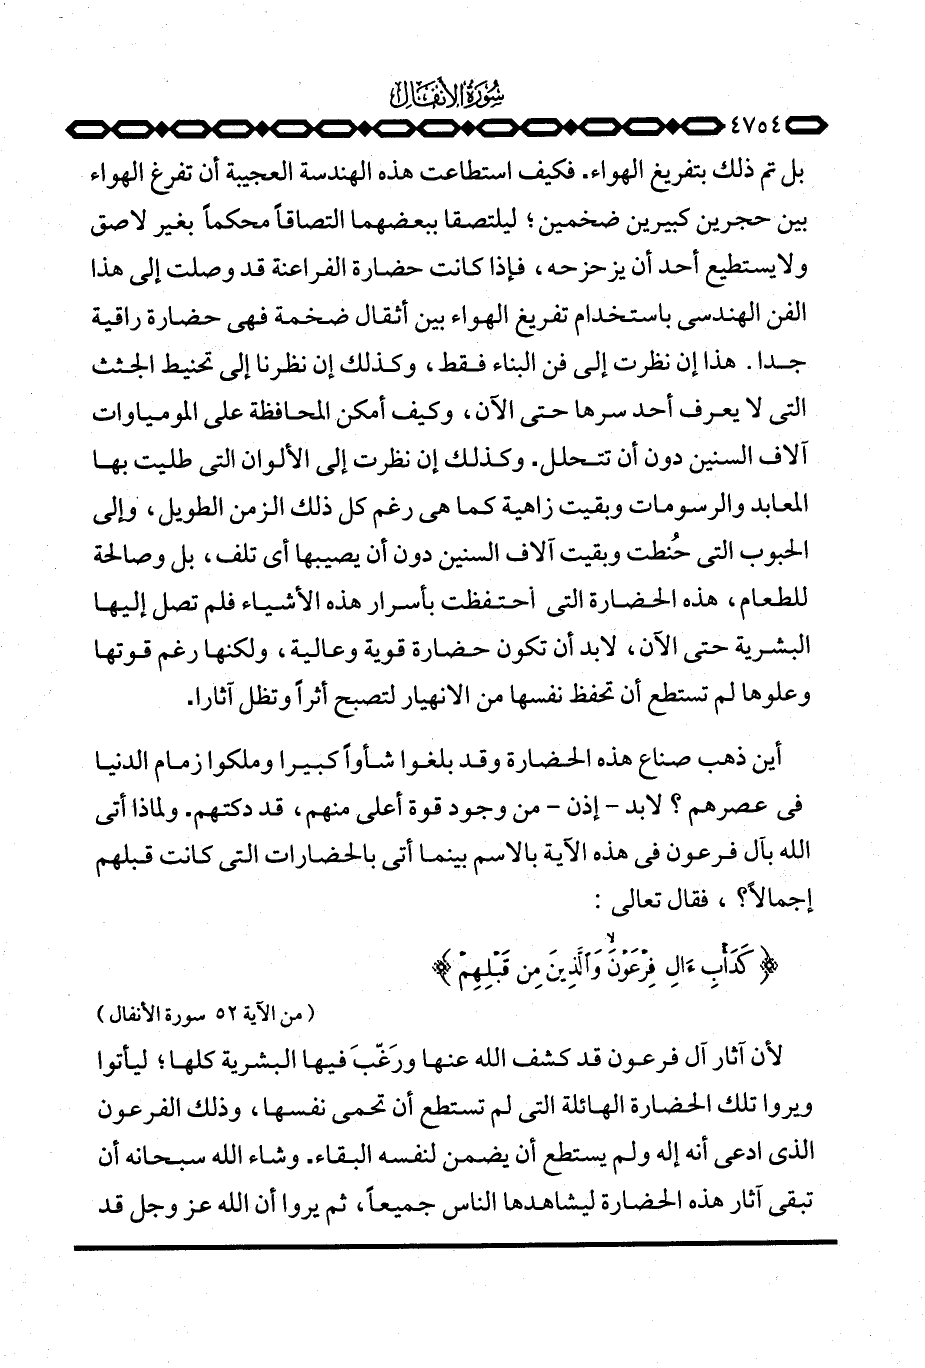 سورة الأنفال
٤٧٥٤
بل تم ذلك بتفريغ الهواء. فكيف استطاعت هذه الهندسة العجيبة أن تفرغ الهواء
بين حجرين كبيرين ضخمين ؛ ليلتصقا ببعضهما التصاقاً محكماً بغير لاصق
ولايستطيع أحد أن يزحزحه، فإذا كانت حضارة الفراعنة قد وصلت إلى هذا
الفن الهندسى باستخدام تفريغ الهواء بين أثقال ضخمة فهى حضارة راقية
جدا. هذا إن نظرت إلى فن البناء فقط، وكذلك إن نظرنا إلى تحنيط الجثث
التى لا يعرف أحد سرها حتى الآن، وكيف أمكن المحافظة على المومياوات
آلاف السنين دون أن تتحلل. وكذلك إن نظرت إلى الألوان التى طليت بها
المعابد والرسومات وبقيت زاهية كما هى رغم كل ذلك الزمن الطويل، وإلى
الحبوب التى حُنطت وبقيت آلاف السنين دون أن يصيبها أى تلف، بل وصالحة
للطعام، هذه الحضارة التى احتفظت بأسرار هذه الأشياء فلم تصل إليها
البشرية حتى الآن، لابد أن تكون حضارة قوية وعالية، ولكنها رغم قوتها
وعلوها لم تستطع أن تحفظ نفسها من الانهيار لتصبح أثراً وتظل آثارا.
أين ذهب صناع هذه الحضارة وقد بلغوا شأواً كبيرا وملكوا زمام الدنيا
فى عصرهم ؟ لابد - إذن - من وجود قوة أعلى منهم، قد دكتهم. ولماذا أتى
الله بآل فرعون فى هذه الآية بالاسم بينما أتى بالحضارات التى كانت قبلهم
إجمالاً؟ ، فقال تعالى :
﴿ كَدَأْبِ ءَالِ فِرْعَوْنَ ۙ وَٱلَّذِينَ مِن قَبْلِهِمْ ﴾
( من الآية ٥٢ سورة الأنفال )
لأن آثار آل فرعون قد كشف الله عنها ورَغّبَ فيها البشرية كلها؛ ليأتوا
ويروا تلك الحضارة الهائلة التى لم تستطع أن تحمى نفسها، وذلك الفرعون
الذى ادعى أنه إله ولم يستطع أن يضمن لنفسه البقاء. وشاء الله سبحانه أن
تبقى آثار هذه الحضارة ليشاهدها الناس جميعاً، ثم يروا أن الله عز وجل قد